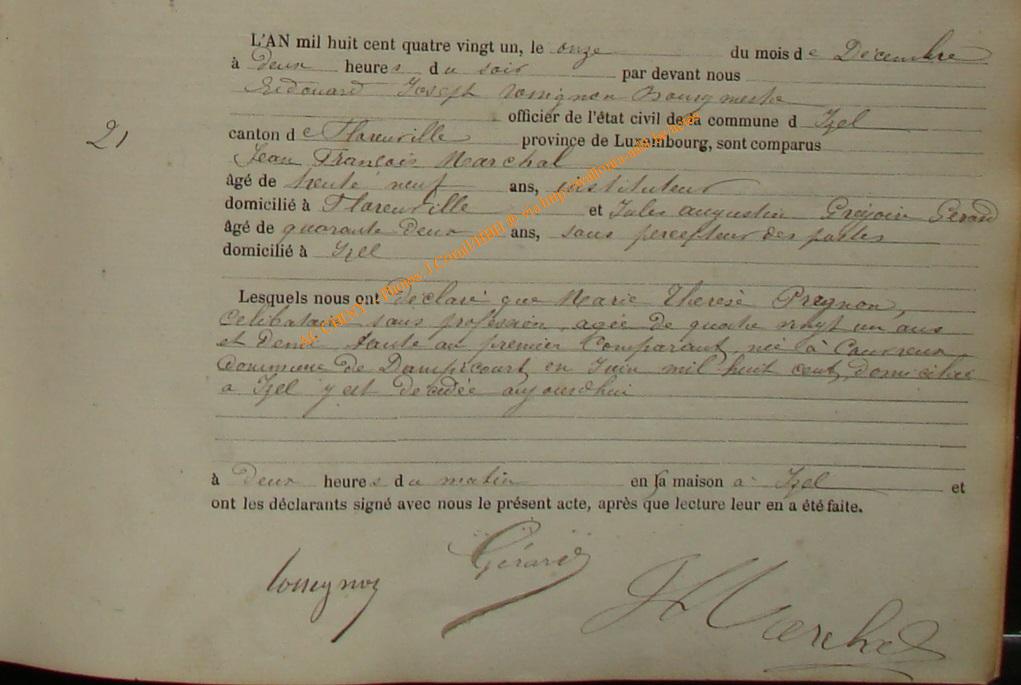 L'AN mil huit cent quatre vingt un, le onze du mois de Décembre
à deux heures du soir par devant nous
Edouard Joseph Rossignon Bourgmestre
officier de l'état civil de la commune d Izel
21
canton de Florenville province de Luxembourg, sont comparus
Jean François Marchal
âgé de trente neuf ans, instituteur
domicilié à Florenville et Jules augustin Grégoire Gerard
âgé de quarante deux ans, sous percepteur des postes
domicilié à Izel
Lesquels nous ont déclaré que Marie Therèse Pregnon,
Celibataire sans profession, agée de quatre vingt un ans
et demi, tante au premier Comparant, née à Couvreux
Commune de Dampicourt en Juin mil huit cent, domiciliée
a Izel y est décédée aujourdhui
à deux heures du matin en sa maison a Izel et
ont les déclarants signé avec nous le présent acte, après que lecture leur en a été faite.
Rossignon Gérard Marchal